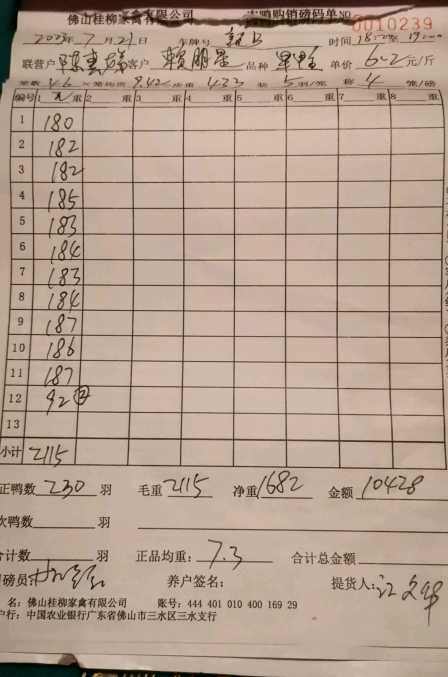 佛山桂柳家禽有限公司 肉鸭购销磅码单NO 0010239
2023年7月21日 车牌号 时间
联营户 客户 品种 单价 6.2 元/斤
4.6 9.42 433 5 4
编号 1 重 2 重 3 重 4 重 5 重 6 重 7 重 8 重
1 180
2 182
3 182
4 185
5 183
6 184
7 183
8 184
9 187
10 186
11 187
12 92②
13
小计 2115
正鸭数 230 羽 毛重 2115 净重 1682 金额 10428
次鸭数 羽
合计数 羽 正品均重: 7.3 合计总金额
司磅员: 养户签名: 提货人:
名: 佛山桂柳家禽有限公司 账号: 444 401 010 400 169 29
户行: 中国农业银行广东省佛山市三水区三水支行